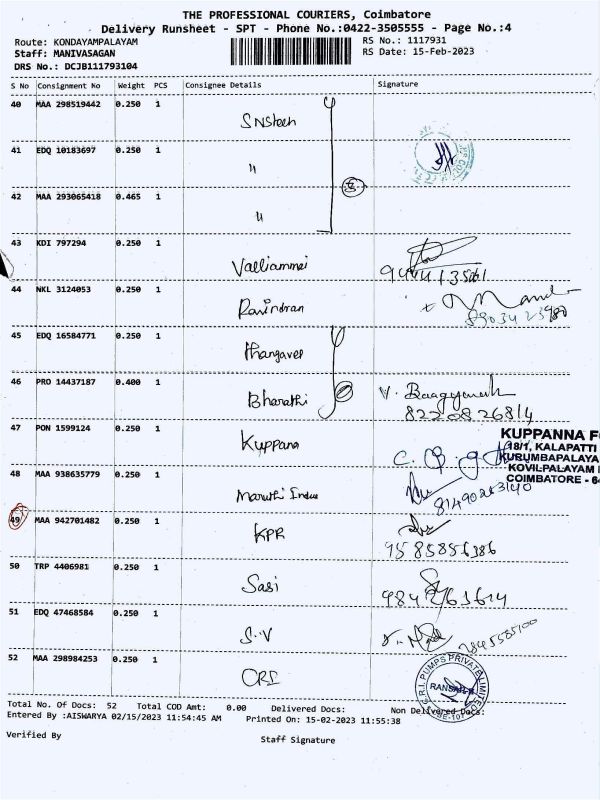 THE PROFESSIONAL COURIERS, Coimbatore
Delivery Runsheet - SPT - Phone No.:0422-3505555 - Page No.:4
Route: KONDAYAMPALAYAM
Staff: MANIVASAGAN
DRS No.: DCJB111793104
RS No.: 1117931
RS Date: 15-Feb-2023
S No Consignment No Weight PCS Consignee Details Signature
40 MAA 298519442 0.250 1
41 EDQ 10183697 0.250 1 "
42 MAA 293065418 0.465 1 "
43 KDI 797294 0.250 1 Valliammai
44 NKL 3124053 0.250 1 Ravindran
45 EDQ 16584771 0.250 1 Thangavel
46 PRO 14437187 0.400 1 Bharathi
8220826814
47 PON 1599124 0.250 1 Kuppana
KUPPANNA
18/1, KALAPATTI
KURUMBAPALAYA
KOVILPALAYAM
COIMBATORE - 64
48 MAA 938635779 0.250 1
49 MAA 942701482 0.250 1 KPR
9585856386
50 TRP 4406981 0.250 1 Sasi
51 EDQ 47468584 0.250 1 S.V
52 MAA 298984253 0.250 1
C.R.I. PUMPS PRIVATE LIMITED
Total No. Of Docs: 52 Total COD Amt: 0.00 Delivered Docs: Non Delivered Docs:
Entered By :AISWARYA 02/15/2023 11:54:45 AM Printed On: 15-02-2023 11:55:38
Verified By Staff Signature